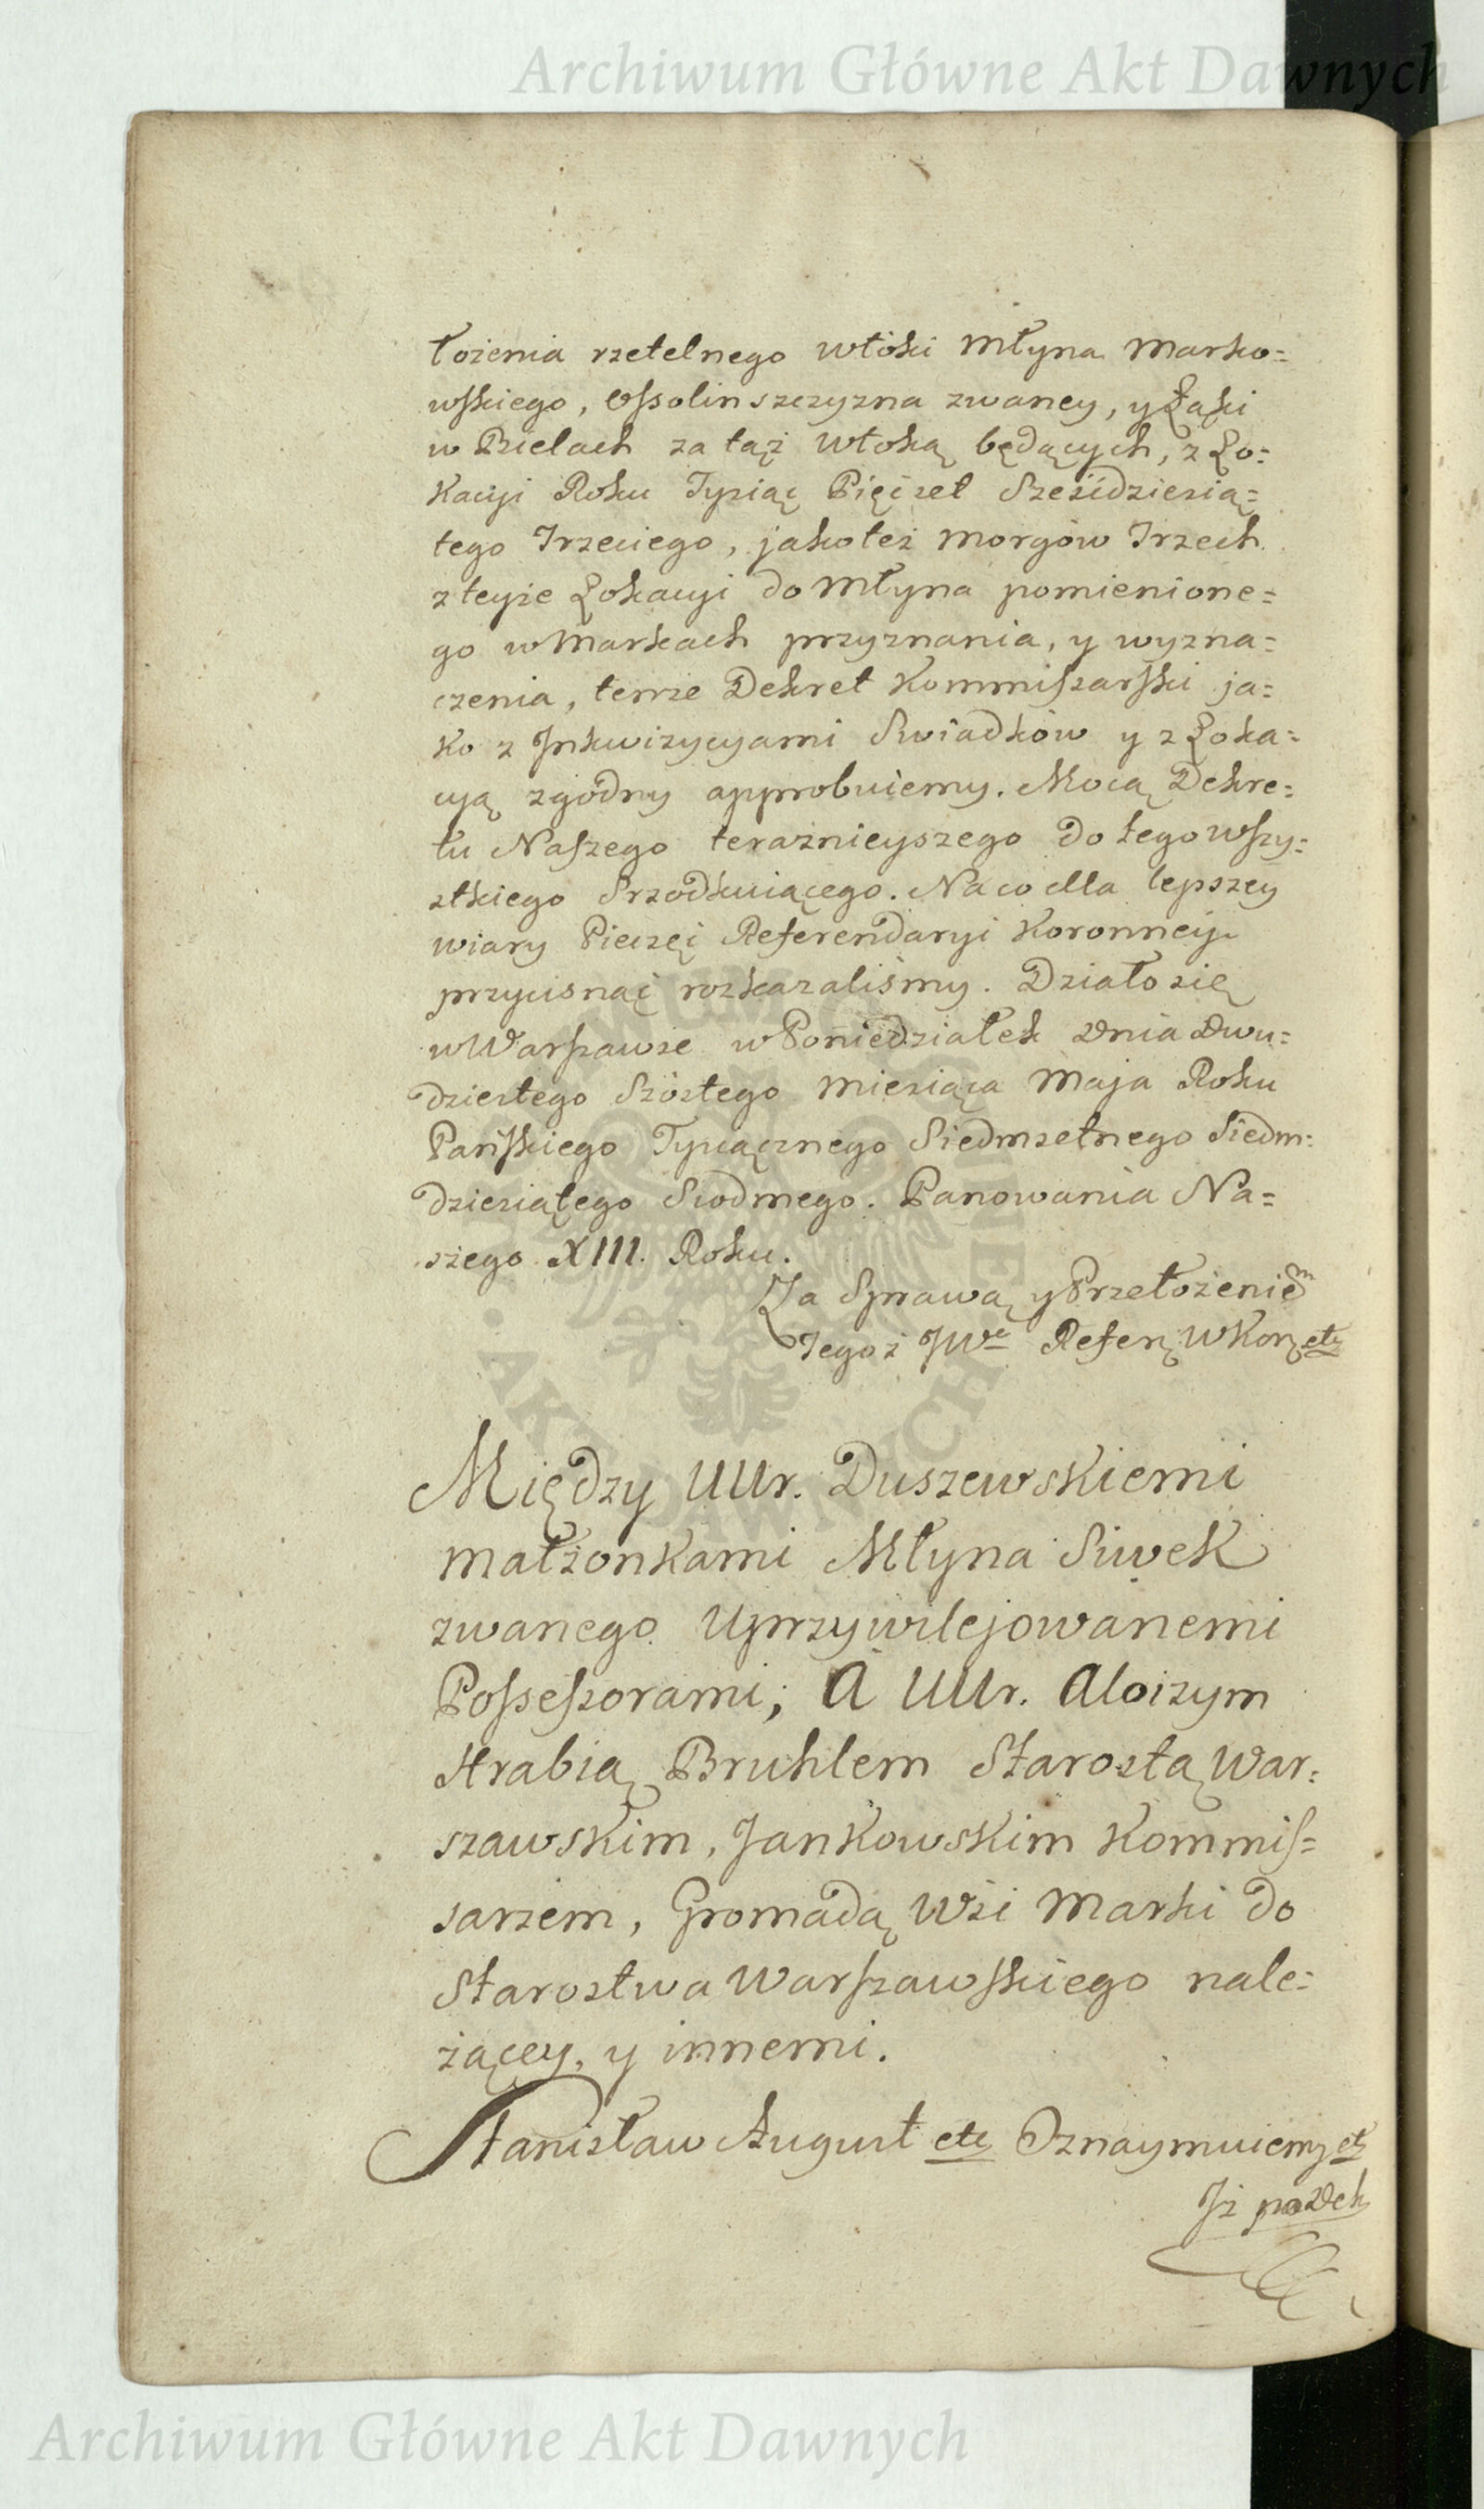 Archiwum Główne Akt Dawnych
łożenia rzetelnego włoki Młyna Marko=
wskiego, Ossolinszczyzna zwaney, y Łąki
w Bielach za tąż włoką będących, z Lo=
kacyi Roku Tysiąc Pięćset Sześćdziesią=
tego Trzeciego, jakoteż morgów Trzech
z teyże Lokacyi do Młyna pomienione=
go w Markach przyznania, y wyzna=
czenia, tenże Dekret Kommissarski ja=
ko z Inkwizycyami Swiadków y z Loka=
cyą zgodny approbuiemy. Mocą Dekre=
tu Naszego teraznieyszego do tego wszy=
stkiego Srzodkuiącego. Na co dla lepszey
wiary Pieczęć Referendaryi Koronney
przycisnąć rozkazaliśmy. Działo się
w Warszawie w Poniedziałek Dnia Dwu=
dziestego Szóstego Miesiąca Maja Roku
Pańskiego Tysiącznego Siedmsetnego Siedm=
dziesiątego Siodmego. Panowania Na=
szego XIII. Roku.
Za Sprawą y Przełożeniem
Tegoż JWe Refer. W Kor. etc
Między UUr. Duszewskiemi
małżonkami Młyna Siwek
zwanego Uprzywilejowanemi
Possessorami; A UUr. Aloizym
Hrabią Bruhlem Starostą War=
szawskim, Jankowskim Kommis=
sarzem, Gromadą Wsi Marki do
Starostwa Warszawskiego nale=
żącey, y innemi.
Stanisław August etc Oznaymuiemy etc
Iż po Dek
Archiwum Główne Akt Dawnych